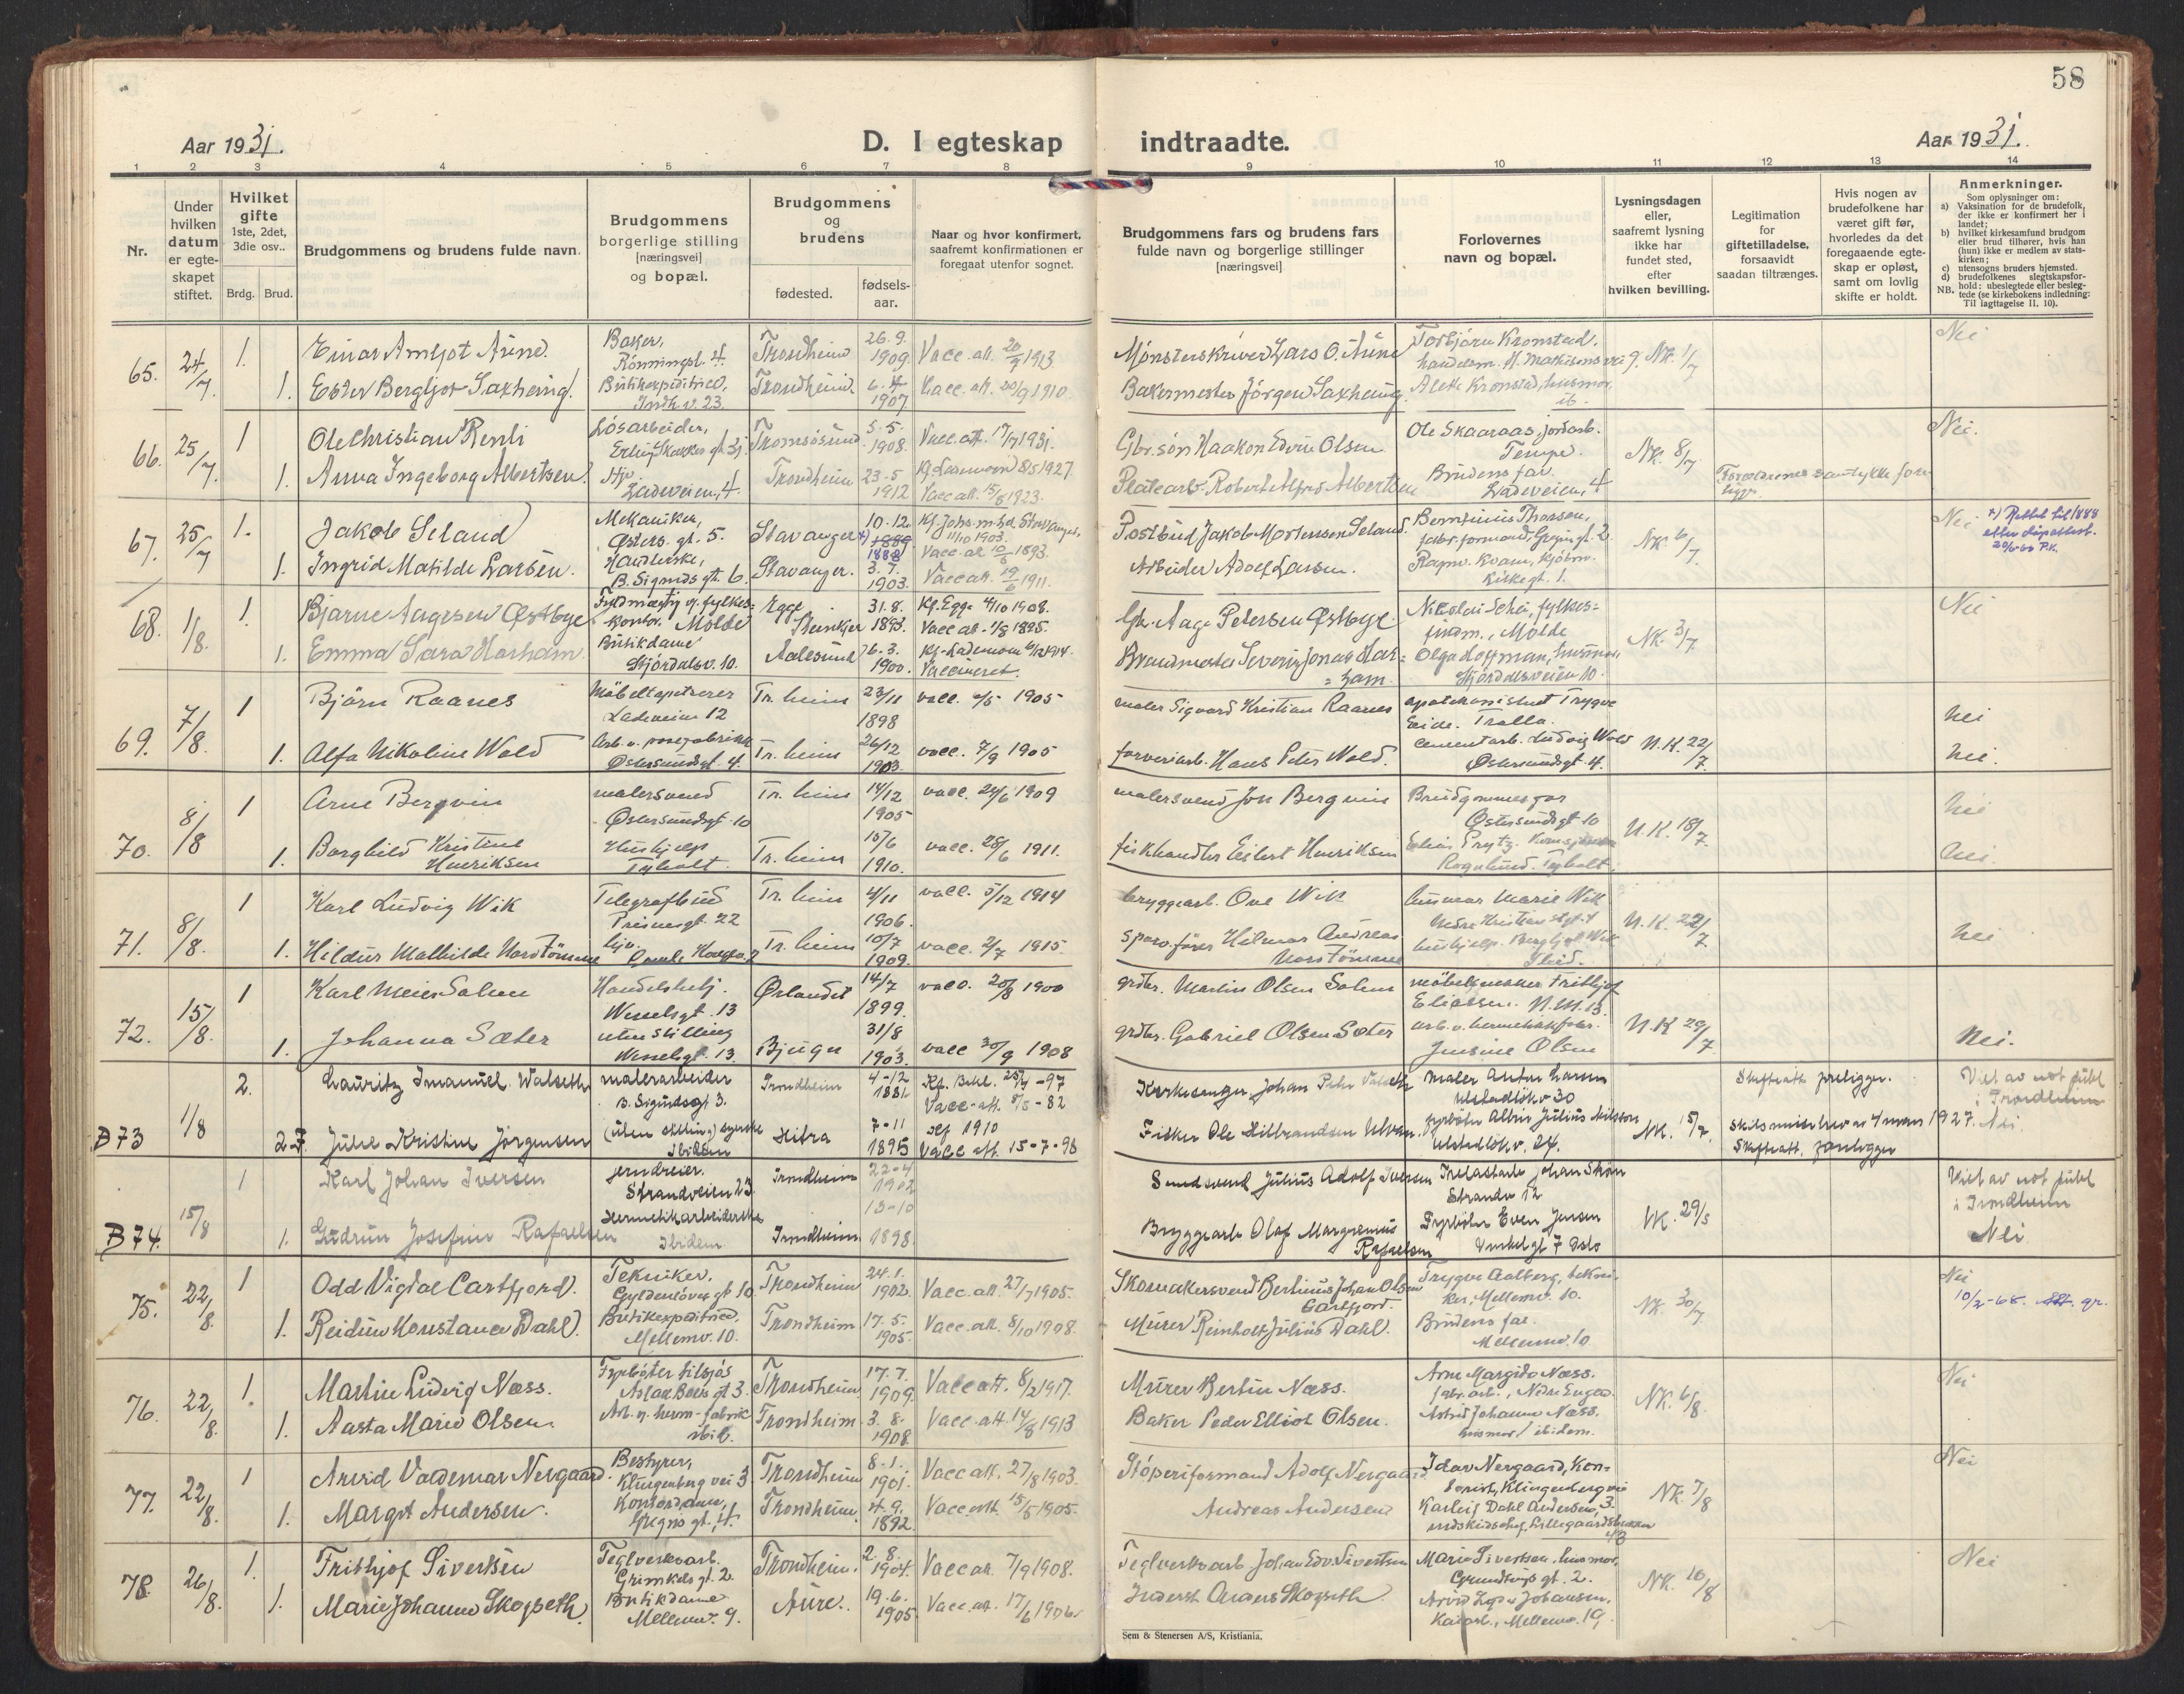 58
Aar 1931.
D. I egteskap indtraadte.
Aar 1931.
1 2 3 4 5 6 7 8 9 10 11 12 13 14
Nr.
Under hvilken datum er egteskapet stiftet.
Hvilket gifte 1ste, 2det, 3die osv..
Brdg. Brud.
Brudgommens og brudens fulde navn.
Brudgommens borgerlige stilling [næringsvei] og bopæl.
Brudgommens og brudens
fødested.
fødsels-aar.
Naar og hvor konfirmert, saafremt konfirmationen er foregaat utenfor sognet.
Brudgommens fars og brudens fars fulde navn og borgerlige stillinger [næringsvei]
Forlovernes navn og bopæl.
Lysningsdagen eller, saafremt lysning ikke har fundet sted, efter hvilken bevilling.
Legitimation for giftetilladelse, forsaavidt saadan tiltrænges.
Hvis nogen av brudefolkene har været gift før, hvorledes da det foregaaende egteskap er opløst, samt om lovlig skifte er holdt.
Anmerkninger.
Som oplysninger om:
a) Vaksination for de brudefolk, der ikke er konfirmert her i landet;
b) hvilket kirkesamfund brudgom eller brud tilhører, hvis han (hun) ikke er medlem av statskirken;
c) utensogns bruders hjemsted.
d) brudefolkenes slegtskapsforhold: ubeslegtede eller beslegtede (se kirkebokens indledning: Til iagttagelse II, 10).
NB.
65. 24/7. 1. Einar Amljot Aune. Baker, Rönningsl. 4. Trondheim 26.9. 1909 Vacc. att. 20/9 1913 Mønsterskriver Lars O. Aune Torbjørn Kronstad, NK. 1/7 Nei
1. Ester Bergljot Saxhaug. Butikexpeditrice, Indh.v. 23. Trondheim 6. 4. 1907 Vacc. att. 20/9 1910. Bakermester Jörgen Saxhaug. Alette Kronstad, husmor. ib.
66. 25/7. 1 Ole Christian Renli Lösarbeider, Erling Skakkes gt. 31 Tromsösund 5.5. 1908. Vacc. att. 17/7 1931. Gbr. søn Haakon Edvin Olsen Ole Skaaraas, jordarb. Tempe. NK. 8/7 Nei.
1. Anna Ingeborg Albertsen. Hjv. Ladeveien, 4. Trondheim 23.5 1912 Kf. Lademoen 8/5 1927. Vacc. att. 15/8 1923. Platearb. Robert Alfred Albertsen Brudens far. Ladeveien, 4 Foreldrenes samtykke forel.
67. 25/7 1. Jakob Seland Mekaniker, Østers. gt. 5. Stavanger 10.12. 1889 1888 Kf. Johs. m.h. Stavanger, 11/10 1903. Vacc. att. 10/6 1893. Postbud Jakob Mortensen Seland. Berntinius Thorsen, fabr. formand, NK. 6/7. Nei x) Rettet til 1888 efter dåpsattest. P.K.
1. Ingrid Matilde Larsen. Handlerske, B. Sigurds gt. 6. Stavanger. 3.7. 1903. Vacc. att. 19/6 1911. Arbeider Adolf Larsen. Ragnv. Kvam, kjøbm. Kirkegt. 1.
68. 1/8. 1. Bjarne Aagesen Østbye Fuldmægtig v. fylkeskontor. Molde Egge Steinkjer 31.8. 1893. Kf. Egge 4/10 1908. Vacc. att. 1/8 1895. Gbr. Aage Petersen Østbye. Nicolai Schei, fylkesfuldm., Molde NK. 3/7. Nei
1. Emma Sara Harham Butikdame Stjördalsv. 10. Aalesund 6.3. 1900. Kf. Lademoen 6/12 1914. Vaccineret. Brandmester Severin Jonas Harham Olga Hoffman, husmor, Stjördalsveien 10.
69. 7/8. 1 Björn Raanes Möbeltapetserer Ladeveien 12 Tr.heim 23/11 1898 vacc. 4/5 1905 maler Sigvard Kristian Raanes apotekbetjent Trygve Eide. Tralla. N.K. 22/7. Nei
1. Alfa Nikoline Wold Arb. v. posefabrikk Østersundsgt. 4. Tr.heim 26/12 1903. vacc. 7/9 1905 farveriarb. Hans Peter Wold. Cementarb. Ludvig Wold Østersundsgt. 4. Nei.
70. 8/8 1 Arne Bergvin malersvend Østersundsgt. 10 Tr.heim 14/12 1905 vacc. 24/6 1909 malersvend Jon Bergvin Brudgommens far Östersundsgt. 10 N.K. 18/7 Nei
1. Borghild Kristine Henriksen Hushjelp Tyholt. Tr.heim 15/6 1910. vacc. 28/6 1911. fiskhandler Eilert Henriksen Elias Prytz. Tyholt. Nei.
71. 8/8. 1 Karl Ludvig Wik Telegrafbud Prinsensgt. 22 Tr.heim 4/11 1906. vacc. 5/12 1914 bryggearb. Ove Wik husmor Marie Wik Nedre Kristiansgt. 1 N.K. 22/7
1. Hildur Mathilde Nordtömme hjv. Gamle Kongev. 2 Tr.heim 10/7 1909. vacc. 2/7 1915. sporv.förer Helmar Andreas Nordtömme hushjelp. Bergljot Wik Ibid. Nei
72. 15/8. 1 Karl Meier Solum Handelsbetj. Wesselsgt. 13 Ørlandet 14/7 1899. vacc. 20/8 1900 grdbr. Martin Olsen Solum möbelsnekker Frithjof Eliassen. N.M. 13. N.K 29/7
1. Johanna Sæter uten stilling Wesselsgt. 13. Bjugn 31/8 1903. vacc 30/9 1908 grdbr. Gabriel Olsen Sæter arb. v. hermetikkfabr. Jensine Olsen Nei.
B 73 1/8 2. Lauritz Imanuel Walseth malerarbeider B. Sigurdsgt 3. Trondheim 4-12 1881 Kf. Bakl. 25/4 -97 Vacc-att. 8/5 - 82 Kirkesanger Johan Peter Valseth Maler Anton Larsen Ulstadløkv 30 NK. 15/7. Skifteatt. foreligger. Viet av not publ i Trondheim
2. Juhl Kristine Jörgensen (uten stilling) syerske Ibidem Hitra 7-11 1895 Kf 1910 Vacc att. 15-7-96 Fisker Ole Hilbrandsen Ulvan. Fyrböter Albin Julius Nilsson Ulstadløkv. 24. 1927. Skifteatt. foreligger Nei.
B 74. 15/8 1 Karl Johan Iversen jerndreier. Strandveien 23. Trondheim 22-4 1902 Sundsvend Julius Adolf Iversen Trelastarb Johan Skjön Strandv 12 NK. 29/5 Viet av not publ i Trondheim
1. Gudrun Josefine Rafaelsen Hermetikarbeiderske Ibidem Trondheim 13-10 1898. Bryggearb Olaf Margrenius Rafaelsen Fyrböter Even Jensen Vinkelgt 7 Oslo Nei
75. 22/8. 1 Odd Vigdal Carlfjord. Tekniker, Gyldenløves gt. 10. Trondheim 24.1. 1902. Vacc. att. 27/7 1905. Skomakersvend Bertinius Johan Olsen Carlfjord. Trygve Aalberg, tekniker, Mellemv. 10. NK. 30/7 Nei 10/2-68. Att. gr.
1. Reidun Konstance Dahl. Butikexpeditrice. Mellemv. 10. Trondheim 17.5. 1905. Vacc. att. 8/10 1908. Murer Reinholt Julius Dahl. Brudens far. Mellemv. 10
76. 22/8. 1. Martin Ludvig Næss. Fyrböter tilsjøs Aslak Bolts gt. 3. Trondheim 17.7. 1909. Vacc att. 8/2 1917. Murer Bertin Næss. Arne Margido Næss. fabr. arb., NK. 6/8. Nei
1. Aasta Marie Olsen. Arb. v. herm-fabrik ibid. Trondheim 3.8. 1908. Vacc. att. 14/8 1913 Baker Peder Elliot Olsen. Astrid Johanne Næss. husmor, ibidem.
77. 22/8. 1 Arvid Valdemar Nergaard. Bestyrer, Klingenberg vei 3 Trondheim 8.1. 1901. Vacc att. 27/8 1903. Støperiformand Adolf Nergaard Idar Nergaard, kontorist, Klingenbergvei 3. NK. 7/8 Nei
1. Margit Andersen. Kontordame, Gregus gt. 4. Trondheim 4.9. 1892. Vacc att. 15/5 1905. Andreas Andersen Karleif Dahl Andersen, Lillegaardsbakken
78. 26/8. 1. Frithjof Sivertsen Teglverksarb. Grimkels gt. 2. Trondheim. 2.8. 1904. Vacc att. 7/9 1908. Teglverksarb. Johan Edv. Sivertsen Marie Sivertsen, husmor, Grundtvigs gt. 2. NK. 10/8 Nei
1. Marie Johanne Skogseth. Butikdame Mellemv. 9. Aure. 19.6. 1905 Vacc. att. 17/6 1906. Inderst Anders Skogseth Arvid Johansen, Kaiarb., Mellemv. 19.
Sem & Stenersen A/S, Kristiania.